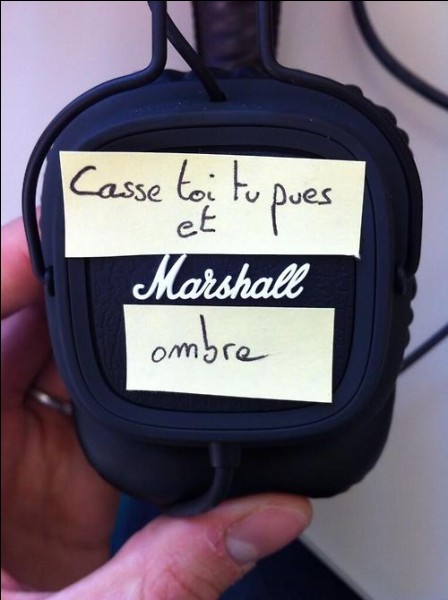 Casse toi tu pues
et
Marshall
ombre